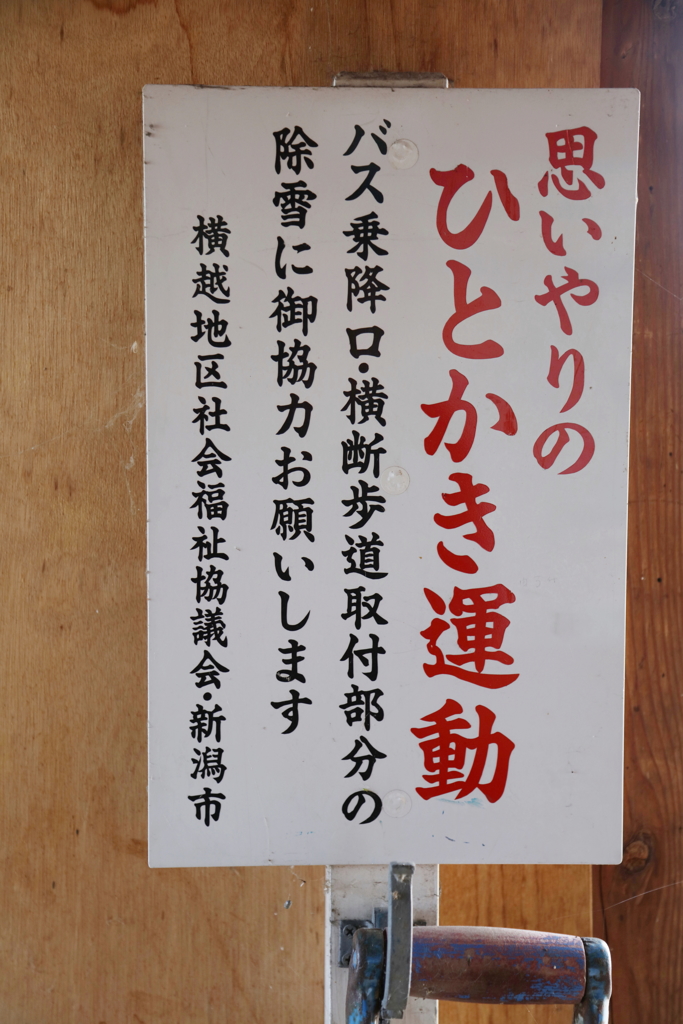 思いやりの
ひとかき運動
バス乗降口・横断歩道取付部分の
除雪に御協力お願いします
横越地区社会福祉協議会・新潟市